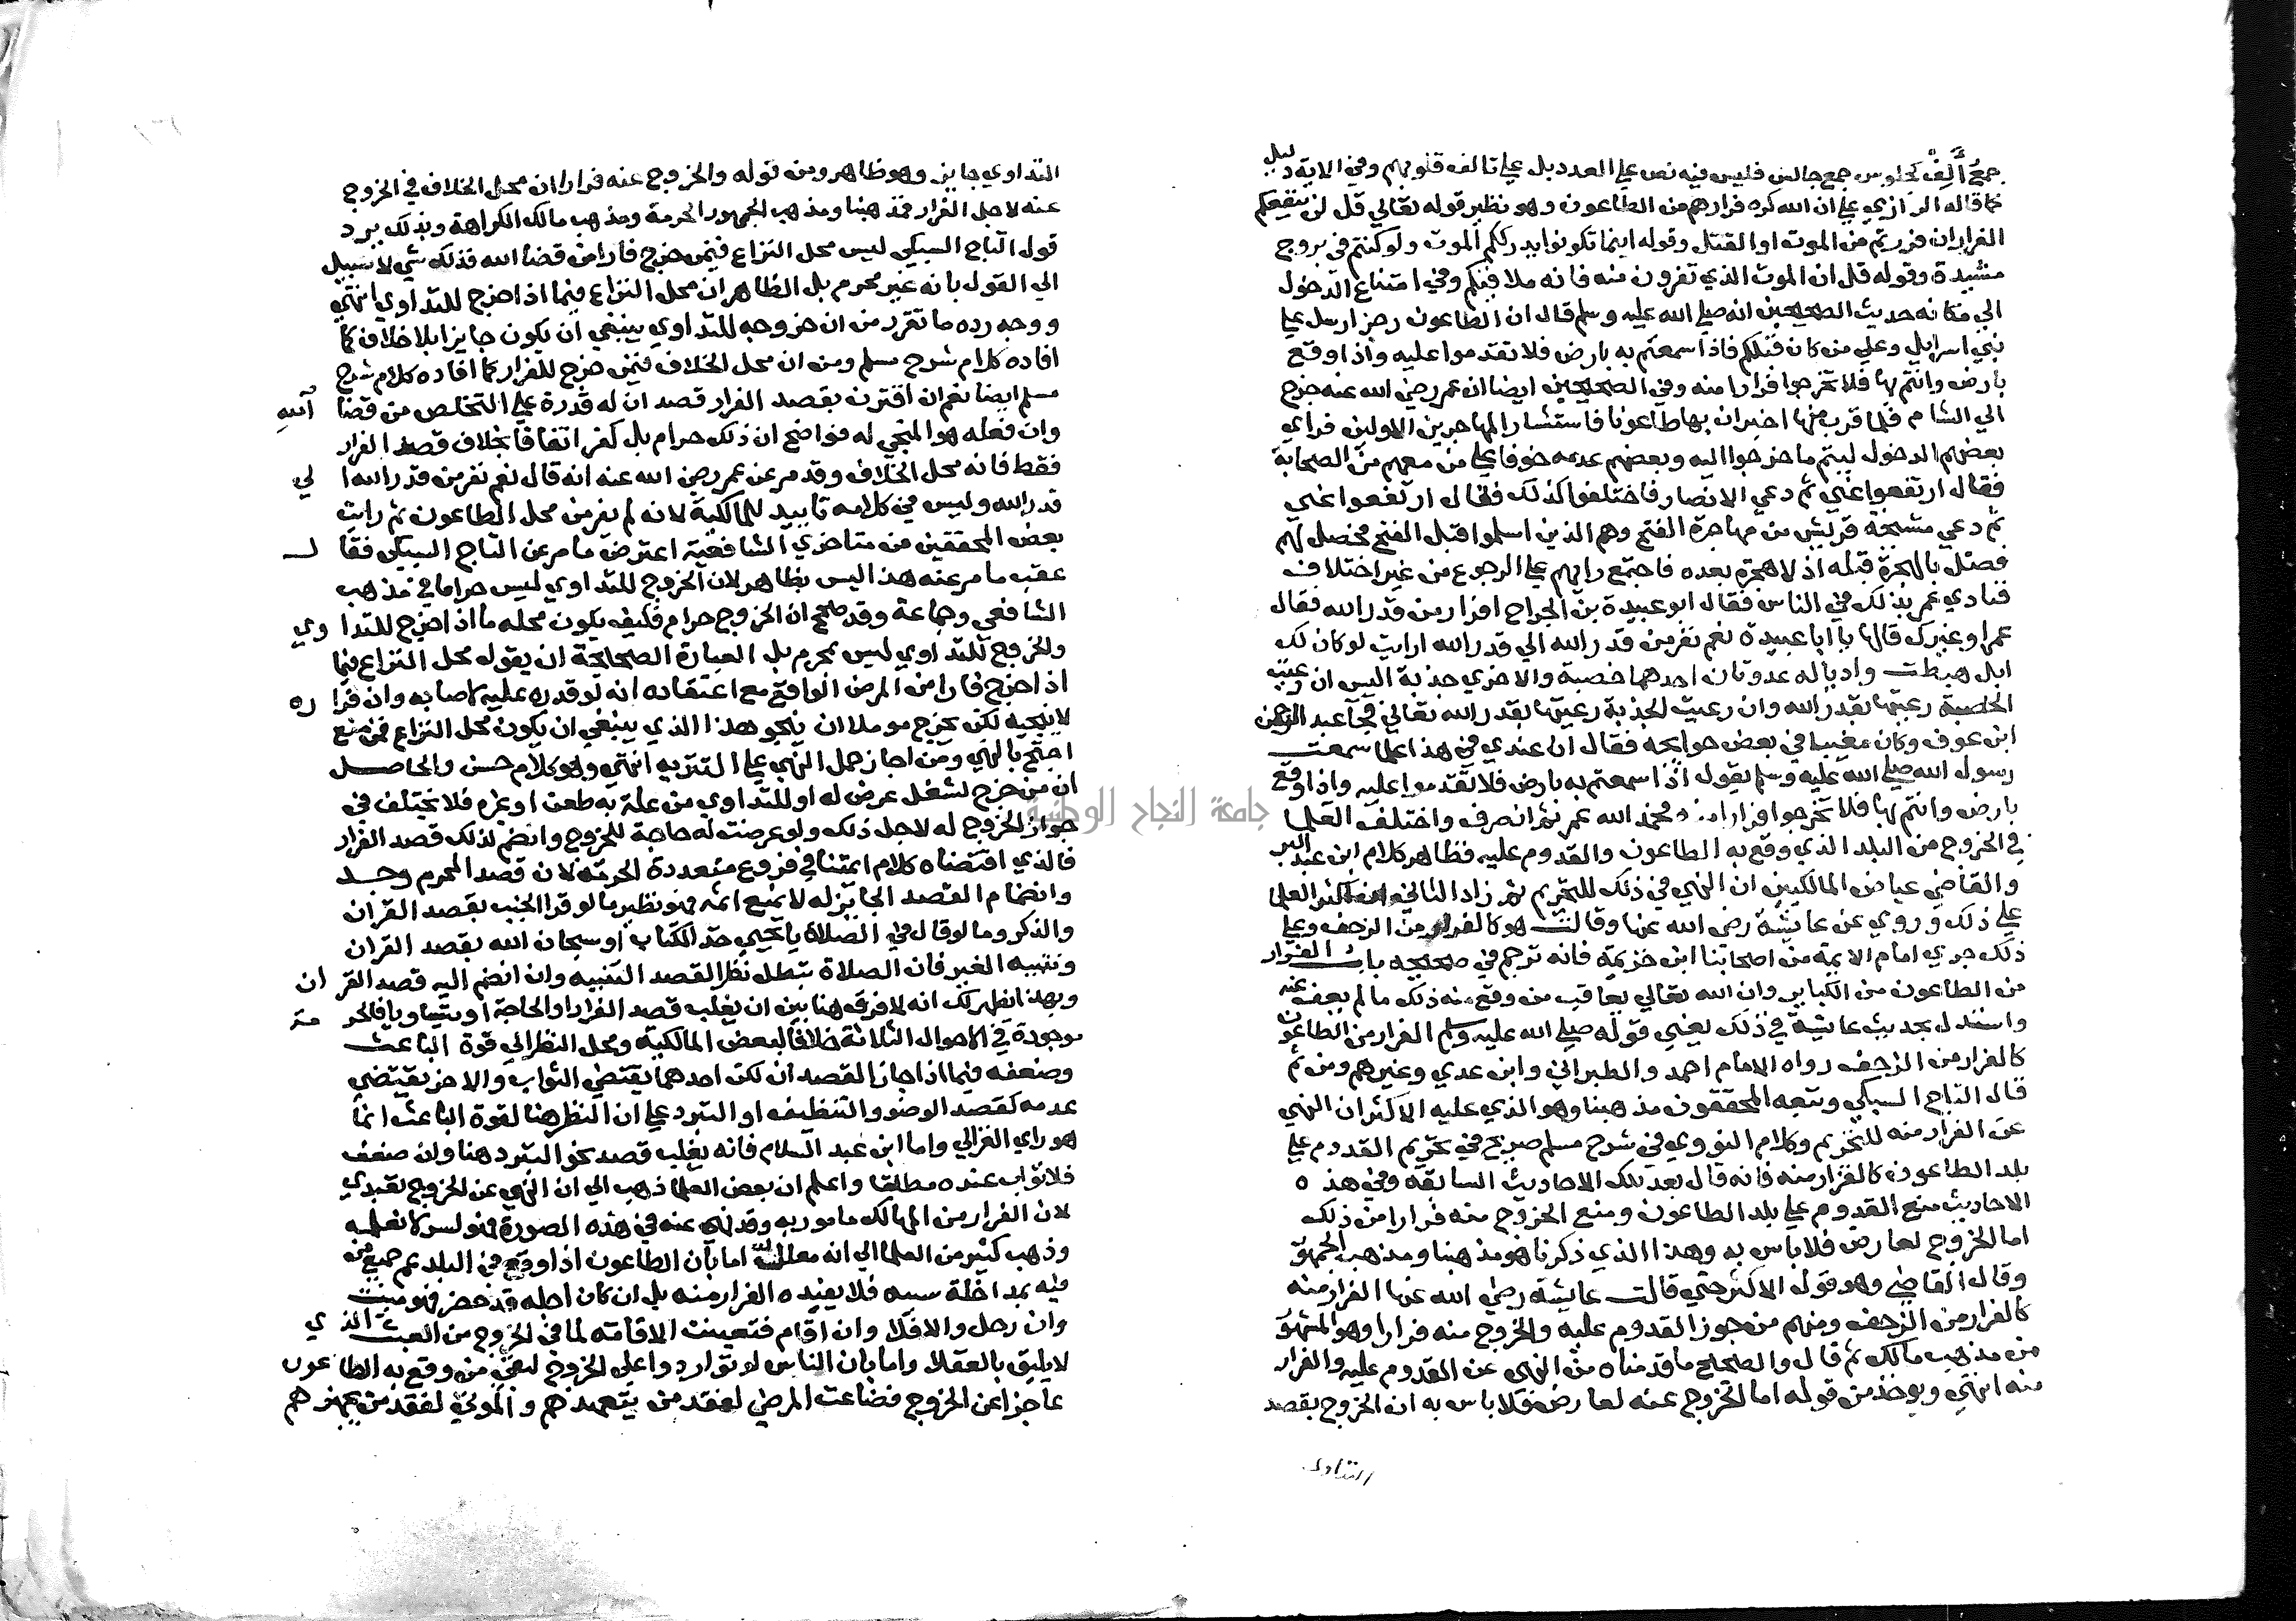 جمع ألف كجلوس جمع جالس فليس فيه نص علي العدد بل علي تالف قلوبهم وفي الاية دليل
كما قاله الرازي علي ان الله كره فرارهم من الطاعون وهو نظير قوله تعالي قل لن ينفعكم
الفرار ان فررتم من الموت او القتل وقوله اينما تكونوا يدرككم الموت ولو كنتم في بروج
مشيدة وقوله قل ان الموت الذي تفرون منه فانه ملاقيكم وفي امتناع الدخول
الي مكانه حديث الصحيحين انه صلي الله عليه وسلم قال ان الطاعون رجز ارسل علي
بني اسرايل وعلي من كان قبلكم فاذا سمعتم به بارض فلا تقدموا عليه واذا وقع
بارض وانتم بها فلا تخرجوا فرارا منه وفي الصحيحين ايضا ان عمر رضي الله عنه خرج
الي الشام فلما قرب منها اخبر ان بها طاعونا فاستشار المهاجرين الاولين فراي
بعضهم الدخول ليتم ما خرجوا اليه وبعضهم عدمه خوفا علي من معهم من الصحابة
فقال ارتفعوا عني ثم دعي الانصار فاختلفوا كذلك فقال ارتفعوا عني
ثم دعي مشيخة قريش من مهاجرة الفتح وهم الذين اسلموا قبل الفتح فحصل لهم
فضل بالهجرة قبله اذ لا هجرة بعده فاجتمع رايهم علي الرجوع من غير اختلاف
فنادي عمر بذلك في الناس فقال ابو عبيدة بن الجراح افرارا من قدر الله فقال
عمر لو غيرك قالها يا ابا عبيدة نعم نفر من قدر الله الي قدر الله ارايت لو كان لك
ابل هبطت واديا له عدوتان احدهما خصبة والاخري جذبة اليس ان رعيت
الخصبة رعيتها بقدر الله وان رعيت الجذبة رعيتها بقدر الله تعالي فجآ عبد الرحمن
ابن عوف وكان مغيبا في بعض حوايجه فقال ان عندي في هذا علما سمعت
رسول الله صلي الله عليه وسلم يقول اذا سمعتم به بارض فلا تقدموا عليه واذا وقع
بارض وانتم بها فلا تخرجوا فرارا منه فحمد الله عمر ثم انصرف واختلف العلما
في الخروج من البلد الذي وقع به الطاعون والقدوم عليه فظاهر كلام ابن عبد البر
والقاضي عياض المالكيين ان النهي في ذلك للتحريم ثم زاد الثاني ان اكثر العلما
علي ذلك وروي عن عايشة رضي الله عنها وقالت هو كالفرار من الزحف وعلي
ذلك جري امام الايمة من اصحابنا ابن خزيمة فانه ترجم في صحيحه باب الفرار
من الطاعون من الكباير وان الله تعالي يعاقب من وقع منه ذلك ما لم يعف عنه
واستدل بحديث عايشة في ذلك يعني قوله صلي الله عليه وسلم الفرار من الطاعون
كالفرار من الزحف رواه الامام احمد والطبراني وابن عدي وغيرهم ومن ثم
قال التاج السبكي وتبعه المحققون مذهبنا وهو الذي عليه الاكثر ان النهي
عن الفرار منه للتحريم وكلام النووي في شرح مسلم صريح في تحريم القدوم علي
بلد الطاعون كالفرار منه فانه قال بعد تلك الاحاديث السابقة وفي هذه
الاحاديث منع القدوم علي بلد الطاعون ومنع الخروج منه فرارا من ذلك
اما الخروج لعارض فلا باس به وهذا الذي ذكرنا هو مذهبنا ومذهب الجمهور
وقال القاضي وهو قول الاكثر حتي قالت عايشة رضي الله عنها الفرار منه
كالفرار من الزحف ومنهم من جوز القدوم عليه والخروج منه فرارا وهو المشهور
من مذهب مالك ثم قال والصحيح ما قدمناه من النهي عن القدوم عليه والفرار
منه انتهي ويوخذ من قوله اما الخروج عنه لعارض فلا باس به ان الخروج بقصد
التداوي
التداوي جايز وهو ظاهر ومن قوله والخروج عنه فرارا ان محل الخلاف في الخروج
عنه لاجل الفرار فمذهبنا ومذهب الجمهور الحرمة ومذهب مالك الكراهة وبذلك يرد
قول التاج السبكي ليس محل النزاع فيمن خرج فارا من قضا الله فذلك شي لا سبيل
الي القول بانه غير محرم بل الظاهر ان محل النزاع فيما اذا خرج للتداوي انتهي
ووجه رده ما تقرر من ان خروجه للتداوي ينبغي ان يكون جايزا بلا خلاف كما
افاده كلام شرح مسلم ومن ان محل الخلاف فيمن خرج للفرار كما افاده كلام شرح
مسلم ايضا نعم ان اقترن بقصد الفرار قصد ان له قدرة علي التخلص من قضا الله
وان فعله هو المنجي له فواضح ان ذلك حرام بل كفر اتفاقا بخلاف قصد الفرار
فقط فانه محل الخلاف وقد مر عن عمر رضي الله عنه انه قال نعم نفر من قدر الله الي
قدر الله وليس في كلامه تاييد للمالكية لانه لم يفر من محل الطاعون ثم رايت
بعض المحققين من متاخري الشافعية اعترض ما مر عن التاج السبكي فقال
عقب ما مر عنه هذا ليس بظاهر لان الخروج للتداوي ليس حراما في مذهب
الشافعي وجماعة وقد صحح ان الخروج حرام فكيف يكون محله ما اذا خرج للتداوي
والخروج للتداوي ليس بمحرم بل العبارة الصحيحة ان يقول محل النزاع فيما
اذا خرج فارا من المرض الواقع مع اعتقاده انه لو قدره عليه لاصابه وان فراره
لا ينجيه لكن يخرج موملا ان ينجو هذا الذي ينبغي ان يكون محل النزاع فمن منع
احتج بالنهي ومن اجاز حمل النهي علي التنزيه انتهي وهو كلام حسن والحاصل
ان من خرج لشغل عرض له او للتداوي من علة به طعن او غيره فلا يختلف في
جواز الخروج له لاجل ذلك ولو عرضت له حاجة للخروج وانضم لذلك قصد الفرار
فالذي اقتضاه كلام ايمتنا في فروع متعددة الحرمة لان قصد المحرم وجد
وانضمام القصد الجايز له لا يمنع اثمه فهو نظير ما لو قرا الجنب بقصد القران
والذكر وما لو قال في الصلاة يا يحيي خذ الكتاب او سبحان الله بقصد القران
وتنبيه الغير فان الصلاة تبطل نظرا لقصد التنبيه وان انضم اليه قصد القران
وبهذا يظهر لك انه لا فرق هنا بين ان يغلب قصد الفرار او الحاجة او يتساويا فالحرمة
موجودة في الاحوال الثلاثة خلافا لبعض المالكية ومحل النظر الي قوة الباعث
وضعفه فيما اذا جاز القصدان لكن احدهما يقتضي الثواب والاخر يقتضي
عدمه كقصد الوضو والتنظيف او التبرد علي ان النظر هنا لقوة الباعث انما
هو راي الغزالي واما ابن عبد السلام فانه يغلب قصد نحو التبرد هنا وان ضعف
فلا ثواب عنده مطلقا واعلم ان بعض العلما ذهب الي ان النهي عن الخروج تعبدي
لان الفرار من المهالك مامور به وقد نهي عنه في هذه الصورة فهو لسر لا نعلمه
وذهب كثير من العلما الي انه معلل اما بان الطاعون اذا وقع في البلد عم جميع من
فيه بمداخلة سببه فلا يفيده الفرار منه بل ان كان اجله قد حضر فهو ميت
وان رحل والا فلا وان اقام فتعينت الاقامة لما في الخروج من العبث الذي
لا يليق بالعقلا واما بان الناس لو تواردوا علي الخروج لبقي من وقع به الطاعون
عاجزا عن الخروج فضاعت المرضي لفقد من يتعهدهم والموتي لفقد من يجهزهم
جامعة النجاح الوطنية